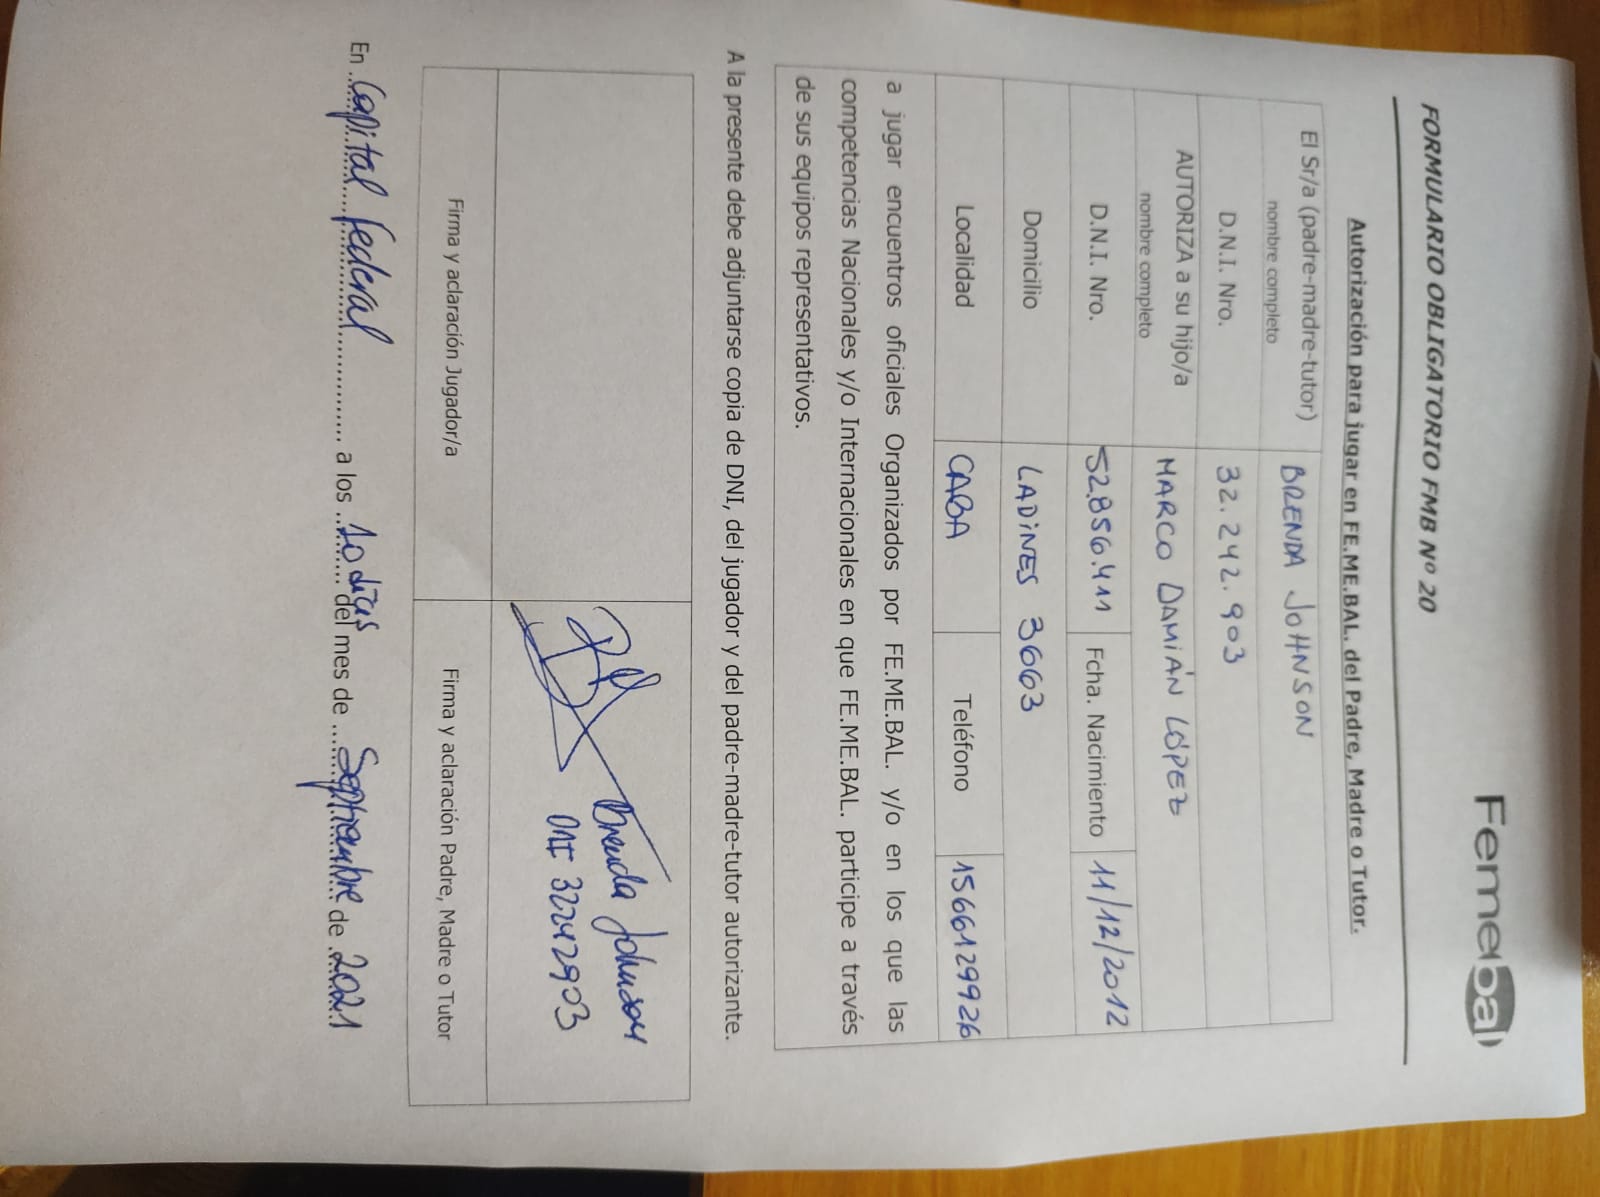 Femebal
FORMULARIO OBLIGATORIO FMB Nº 20
Autorización para jugar en FE.ME.BAL. del Padre, Madre o Tutor.
El Sr/a (padre-madre-tutor) nombre completo BRENDA JOHNSON
D.N.I. Nro. 32.242.903
AUTORIZA a su hijo/a nombre completo MARCO DAMIÁN LÓPEZ
D.N.I. Nro. 52.856.411 Fcha. Nacimiento 11/12/2012
Domicilio LADINES 3663
Localidad CABA Teléfono 1566129926
a jugar encuentros oficiales Organizados por FE.ME.BAL. y/o en los que las
competencias Nacionales y/o Internacionales en que FE.ME.BAL. participe a través
de sus equipos representativos.
A la presente debe adjuntarse copia de DNI, del jugador y del padre-madre-tutor autorizante.
Brenda Johnson
DNI 32242903
Firma y aclaración Jugador/a Firma y aclaración Padre, Madre o Tutor
En Capital Federal a los 10 días del mes de Septiembre de 2021